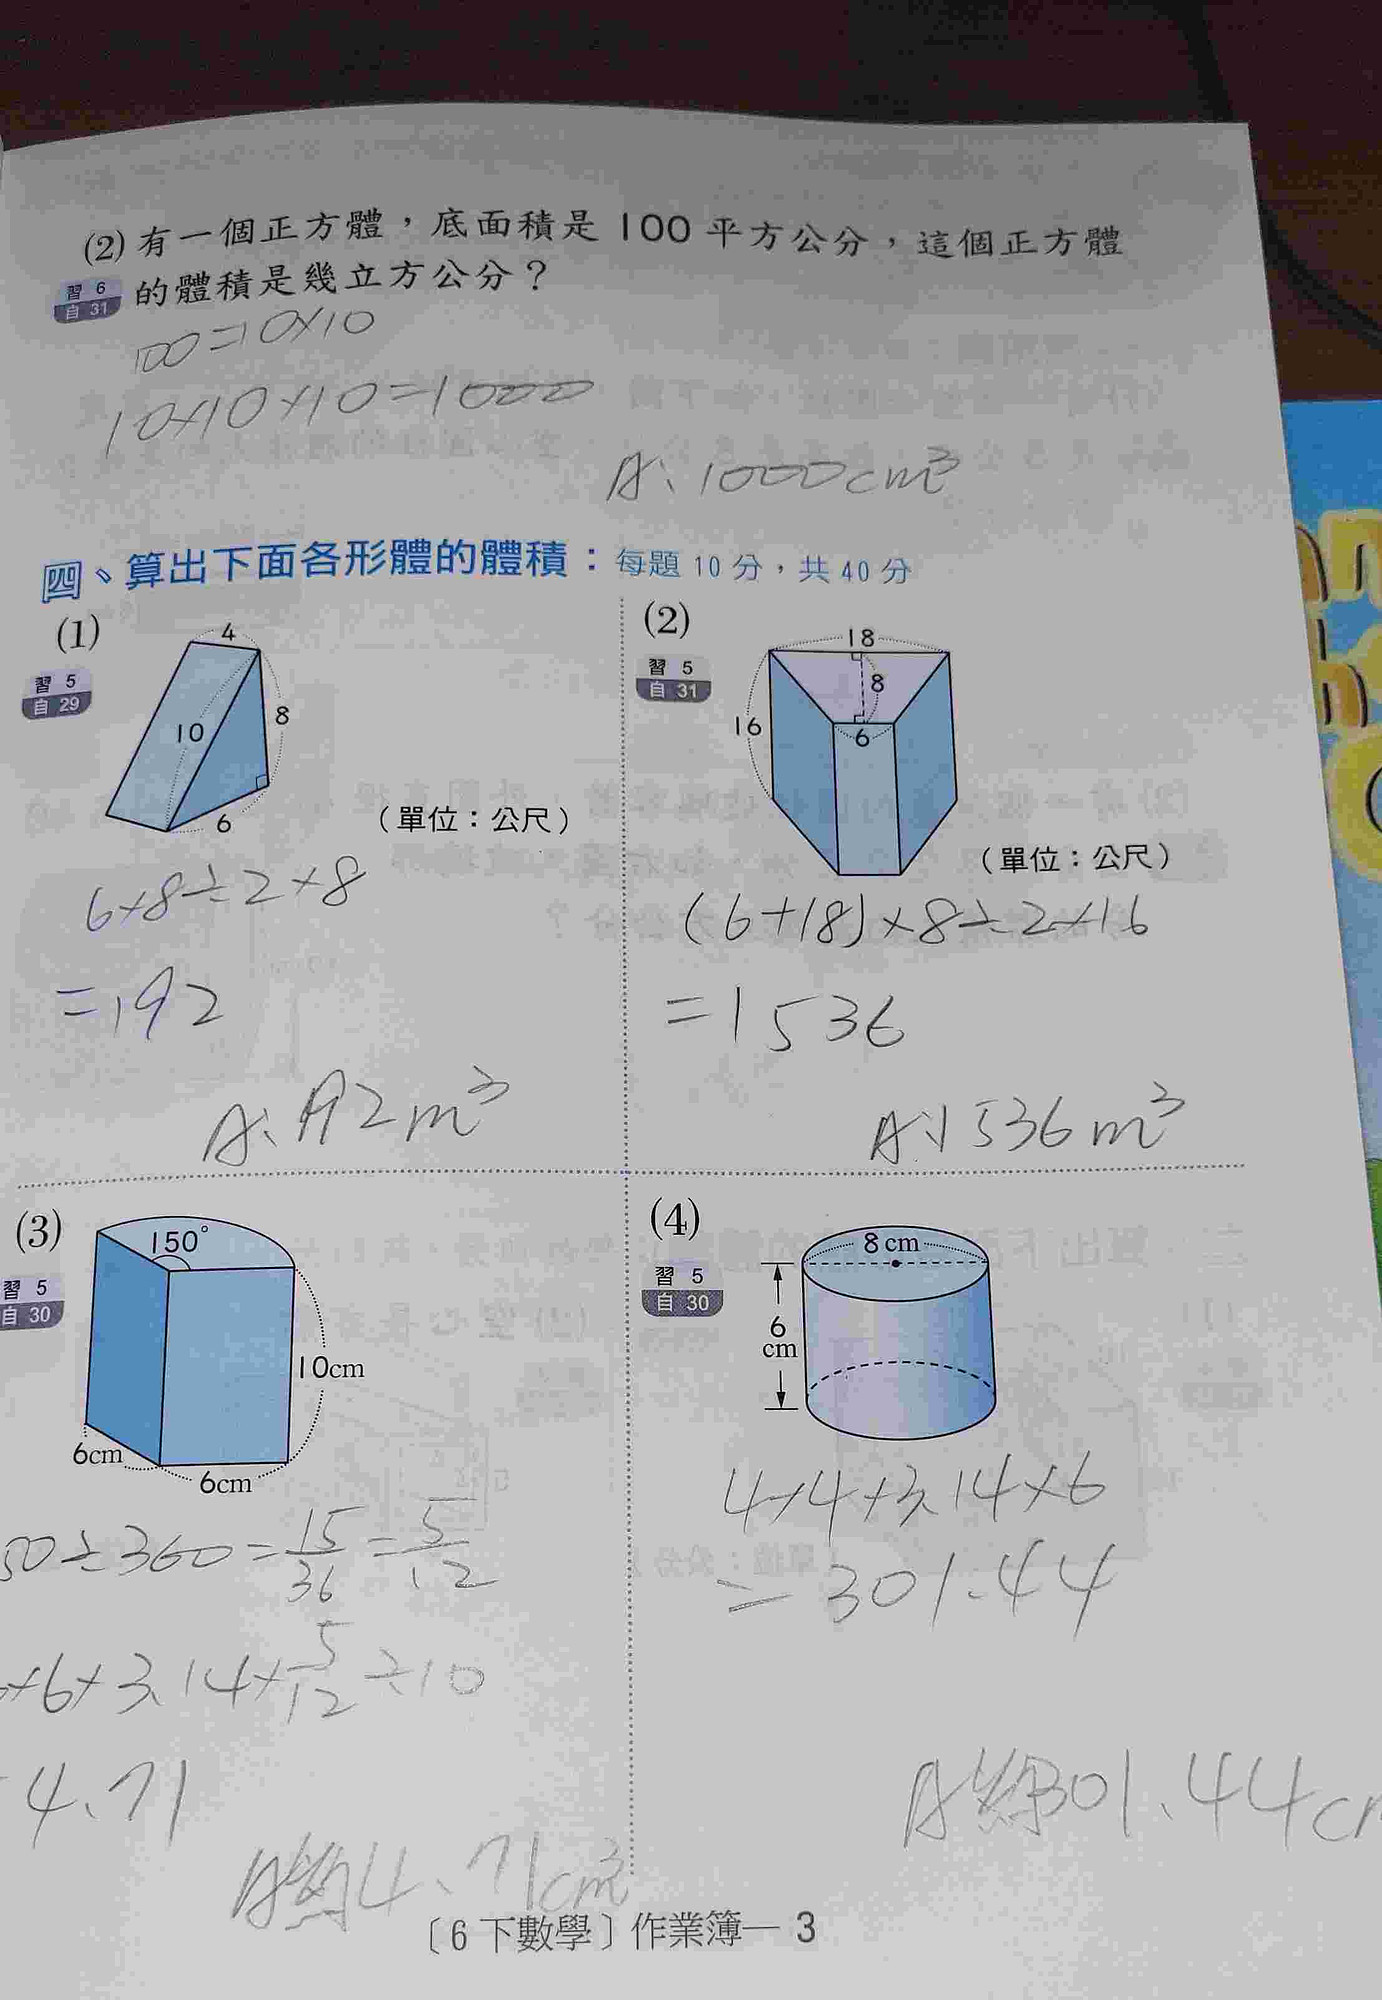 (2) 有一個正方體，底面積是100平方公分，這個正方體
習 6
自 31
的體積是幾立方公分？
100=10×10
10×10×10=1000
A、1000cm³
四、算出下面各形體的體積：每題10分，共40分
(1)
習 5
自 29
4
10
8
6
（單位：公尺）
6×8÷2×8
=192
A、192m³
(2)
習 5
自 31
18
8
16
6
（單位：公尺）
(6+18)×8÷2×16
=1536
A、1536m³
(3)
習 5
自 30
150°
10cm
6cm
6cm
50÷360=15/36=5/12
×6×3.14×5/12÷10
4.71
A約4.71cm³
(4)
習 5
自 30
8cm
6
cm
4×4×3.14×6
=301.44
A約301.44c
〔6下數學〕作業簿—3